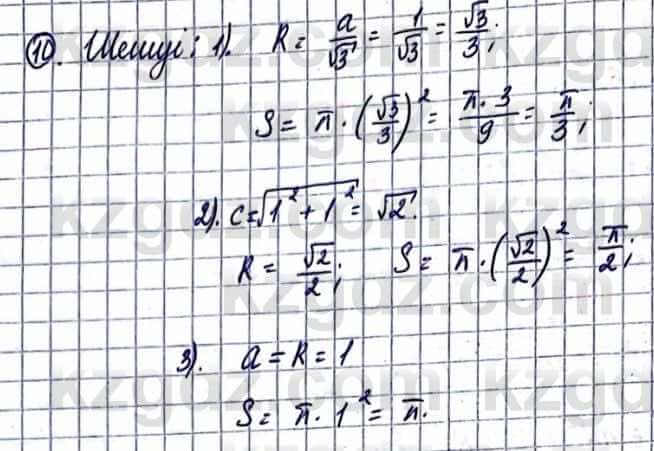 10. Шешуі: 1). R = a/√3 = 1/√3 = √3/3;
S = π · (√3/3)² = π·3/9 = π/3;
2). c = √1² + 1² = √2.
R = √2/2; S = π · (√2/2)² = π/2;
3). a = R = 1
S = π · 1² = π.
kzgdz.com